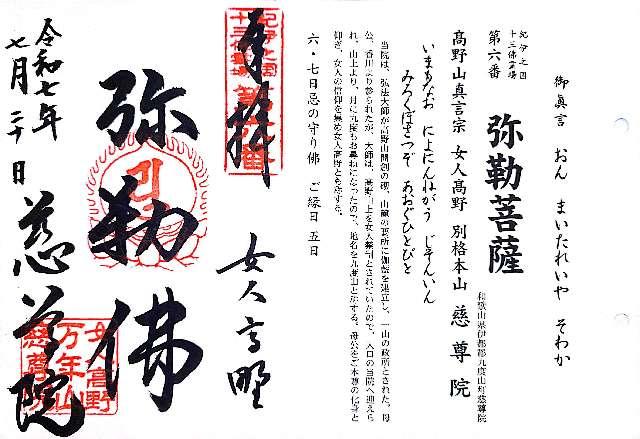 御眞言 おん まいたれいや そわか
紀伊之国
十三佛霊場
第六番
弥勒菩薩
和歌山県伊都郡九度山町慈尊院
高野山真言宗 女人高野 別格本山 慈尊院
いまもなお によにんねがう じそんいん
みろくぼさつぞ あおぐひとびと
当院は、弘法大師が高野山開創の砌、山麓の要所に伽藍を建立し、一山の政所とされた。母
公、香川より参られたが、大師は、高野山上を女人禁制とされていたので、入口の当院へ迎えら
れ、山上より、月に九度もお尋ねになったので、地名を九度山と称する。母公をご本尊の化身と
仰ぎ、女人の信仰を集め女人高野とも称する。
六・七日忌の守り佛 ご縁日 五日
紀伊之国
十三佛霊場
第六番
奉拝
女人高野
弥勒佛
女人高野
万年山
慈尊院
慈尊院
令和七年
七月二十日